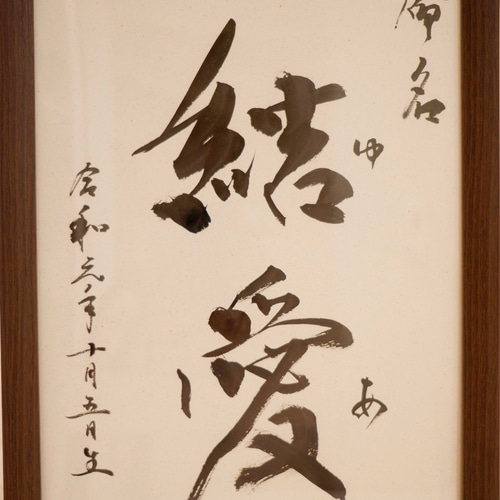 御名
結愛
ゆ
あ
令和元年十月五日生